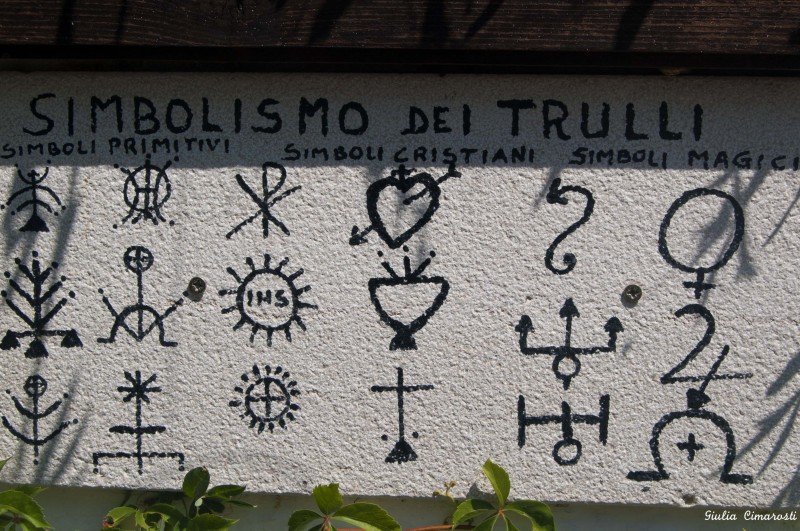 SIMBOLISMO DEI TRULLI
SIMBOLI PRIMITIVI SIMBOLI CRISTIANI SIMBOLI MAGICI
IHS
Giulia Cimarosti